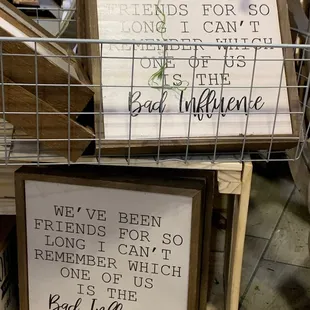 FRIENDS FOR SO
LONG I CAN'T
REMEMBER WHICH
ONE OF US
IS THE
Bad Influence
WE'VE BEEN
FRIENDS FOR SO
LONG I CAN'T
REMEMBER WHICH
ONE OF US
IS THE
Bad